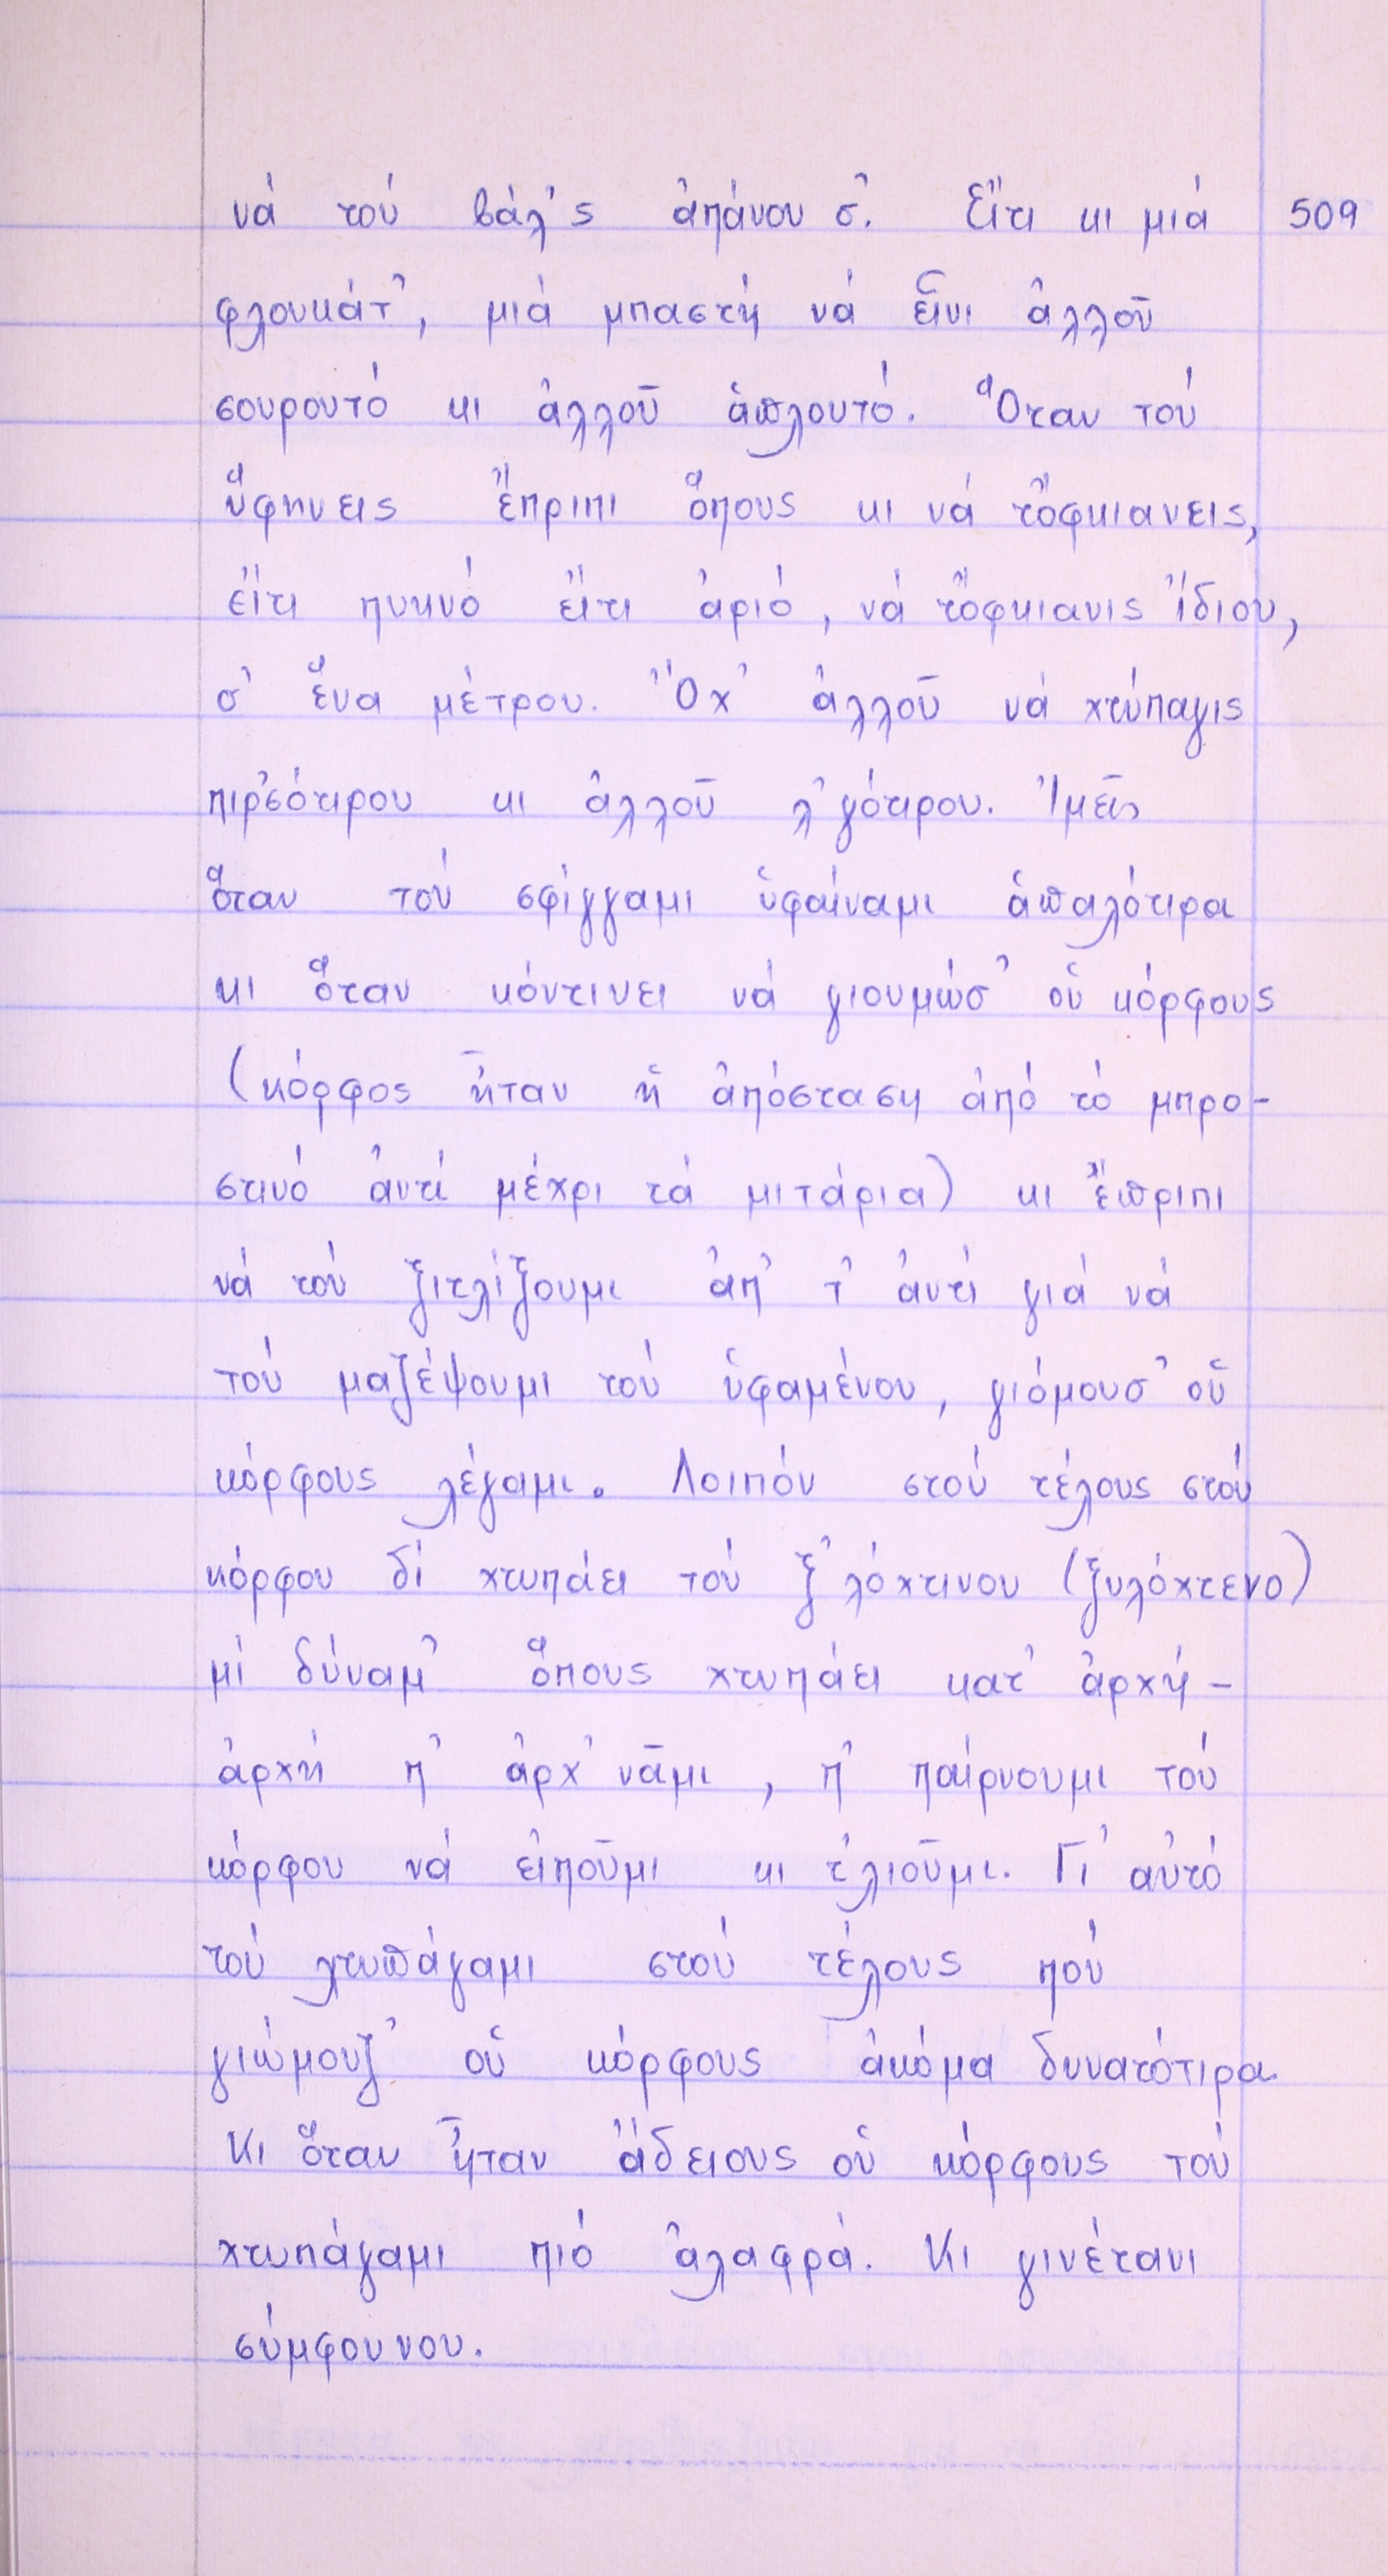 νά τού βάλ'ς ἀπάνου σ'. Εἴτι κι μιά 509
φλουκάτ', μιά μπαστή νά εἶνι ἀλλοῦ
σουρουτό κι ἀλλοῦ ἁπλουτό. Ὅταν τού
ὕφηνεις ἔπριπι ὅπους κι νά τὄφκιανεις,
εἴτι πυκνό εἴτι ἀριό, νά τὄφκιανις ἴδιου,
σ' ἕνα μέτρου. Ὄχ' ἀλλοῦ νά χτύπαγις
πιρ'σότιρου κι ἀλλοῦ λ'γότιρου. Ἰμεῖς
ὅταν τού σφίγγαμι ὑφαίναμι ἁπαλότιρα
κι ὅταν κόντινει νά γιουμώσ' οὑ κόρφους
(κόρφος ἦταν ἡ ἀπόσταση ἀπό τό μπρο-
στινό ἀντί μέχρι τά μιτάρια) κι ἔπριπι
νά τού ξιτλίξουμι ἀπ' τ' ἀντί γιά νά
τού μαζέψουμι τού ὑφαμένου, γιόμουσ' οὑ
κόρφους λέγαμι. Λοιπόν στού τέλους στού
κόρφου δί χτυπάει τού ξ'λόχτινου (ξυλόχτενο)
μί δύναμ' ὅπους χτυπάει κατ' ἀρχή-
ἀρχή π' ἀρχ'νᾶμι, π' παίρνουμι τού
κόρφου νά εἰποῦμι κι τ'λιοῦμι. Γι' αὐτό
τού χτυπάγαμι στού τέλους πού
γιώμουζ' οὑ κόρφους ἀκόμα δυνατότιρα.
Κι ὅταν ἦταν ἄδειους οὑ κόρφους τού
χτυπάγαμι πιό ἀλαφρά. Κι γινέτανι
σύμφουνου.